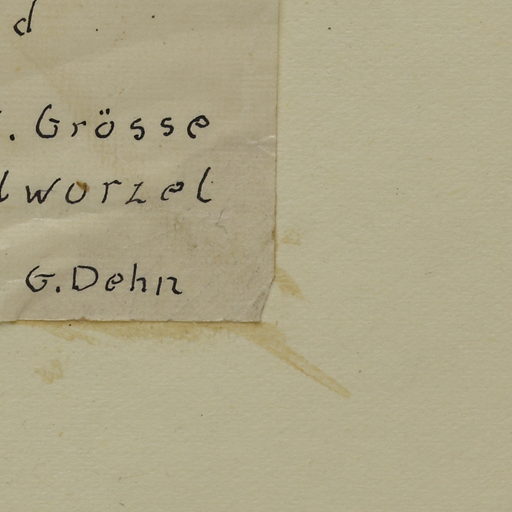 d
. Grösse
lworzel
G. Dehn